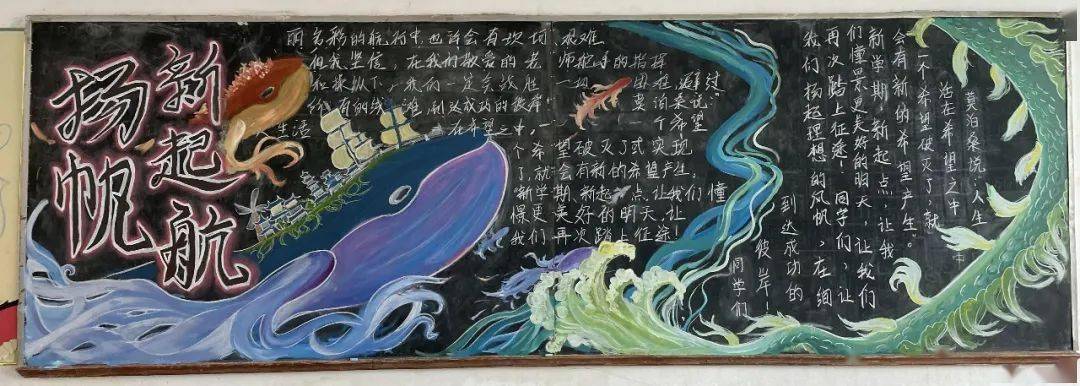 扬帆
新起航
多彩的航行中也许会有坎坷、艰难
但我坚信,在我们敬爱的老师把手的指挥
和操纵下,我们一定会战胜一切
到达成功的彼岸 莫泊桑说
人生活在希望之中,一个希望
个希望破灭了或实现
了,就会有新的希望产生,
新学期、新起点,让我们憧
憬更美好的明天,让
我们再次踏上征途!
莫泊桑说:人生
活在希望之中
一个希望破灭了,就
会有新的希望产生。
新学期、新起点,让我
们憧憬更美好的明天,让我们
再次踏上征途!同学们,让
我们扬起理想的风帆,在细
到达成功的
彼岸
同学们
中